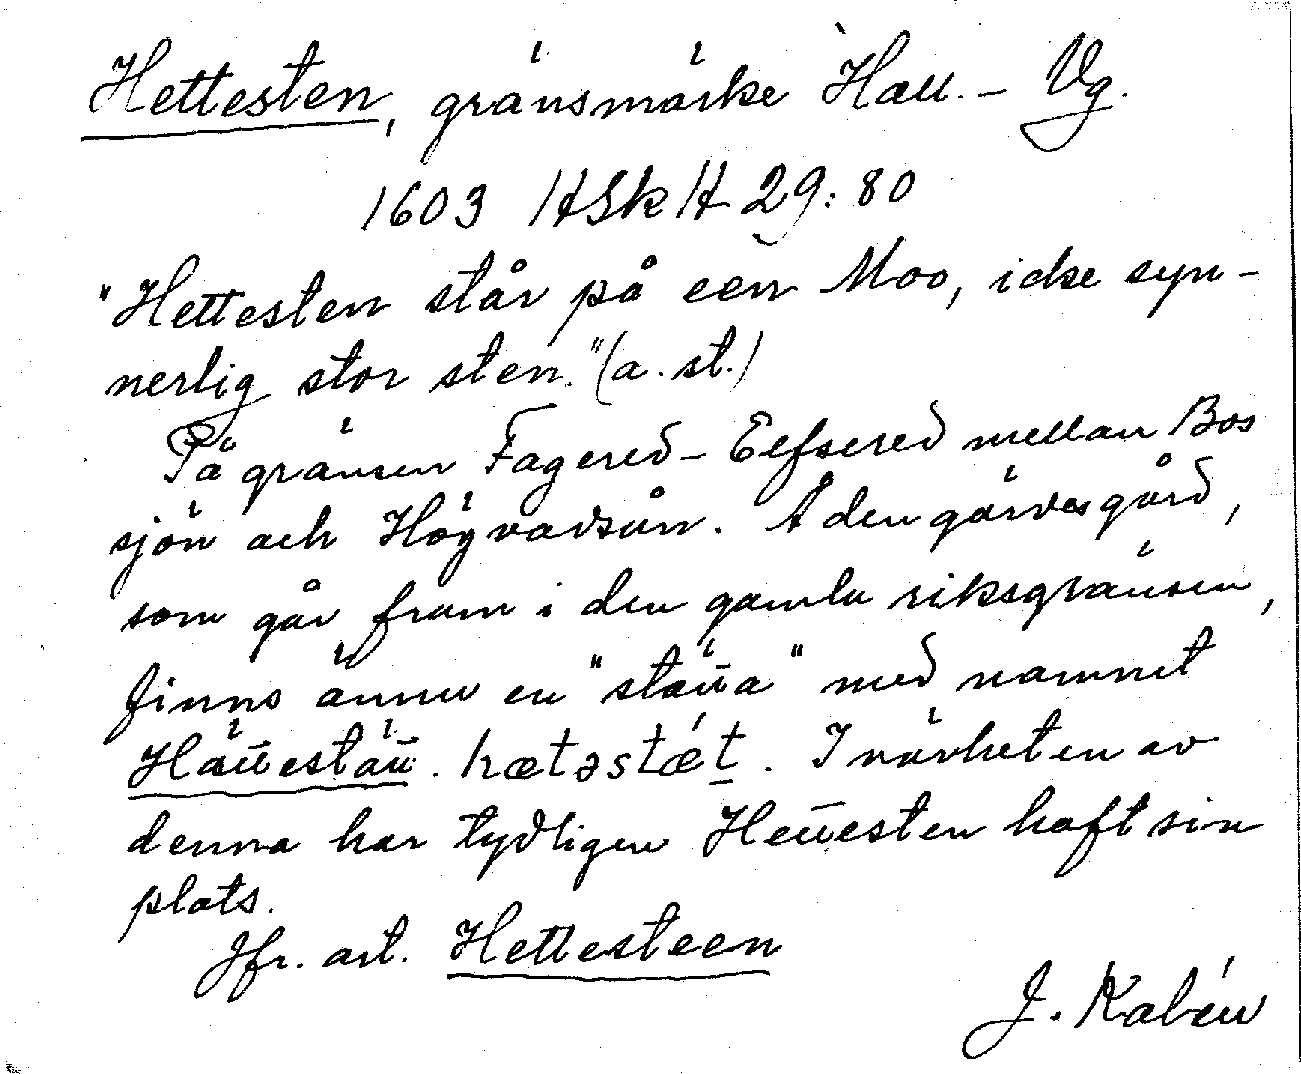 Hettesten, gränsmärke Hall. - Vg.
1603 HSkH 29:80
"Hettesten står på een Moo, icke syn-
nerlig stor sten." (a. st.)
På gränsen Fagered - Elfsered mellan Bos
sjön och Högvadsån. Å den gärdesgård,
som går fram i den gamla riksgränsen,
finns ännu en "stätta" med namnet
Hättestätt. hætəstǽt. I närheten av
denna har tydligen Hettesten haft sin
plats.
Jfr. art. Hettesteen
J. Kalén